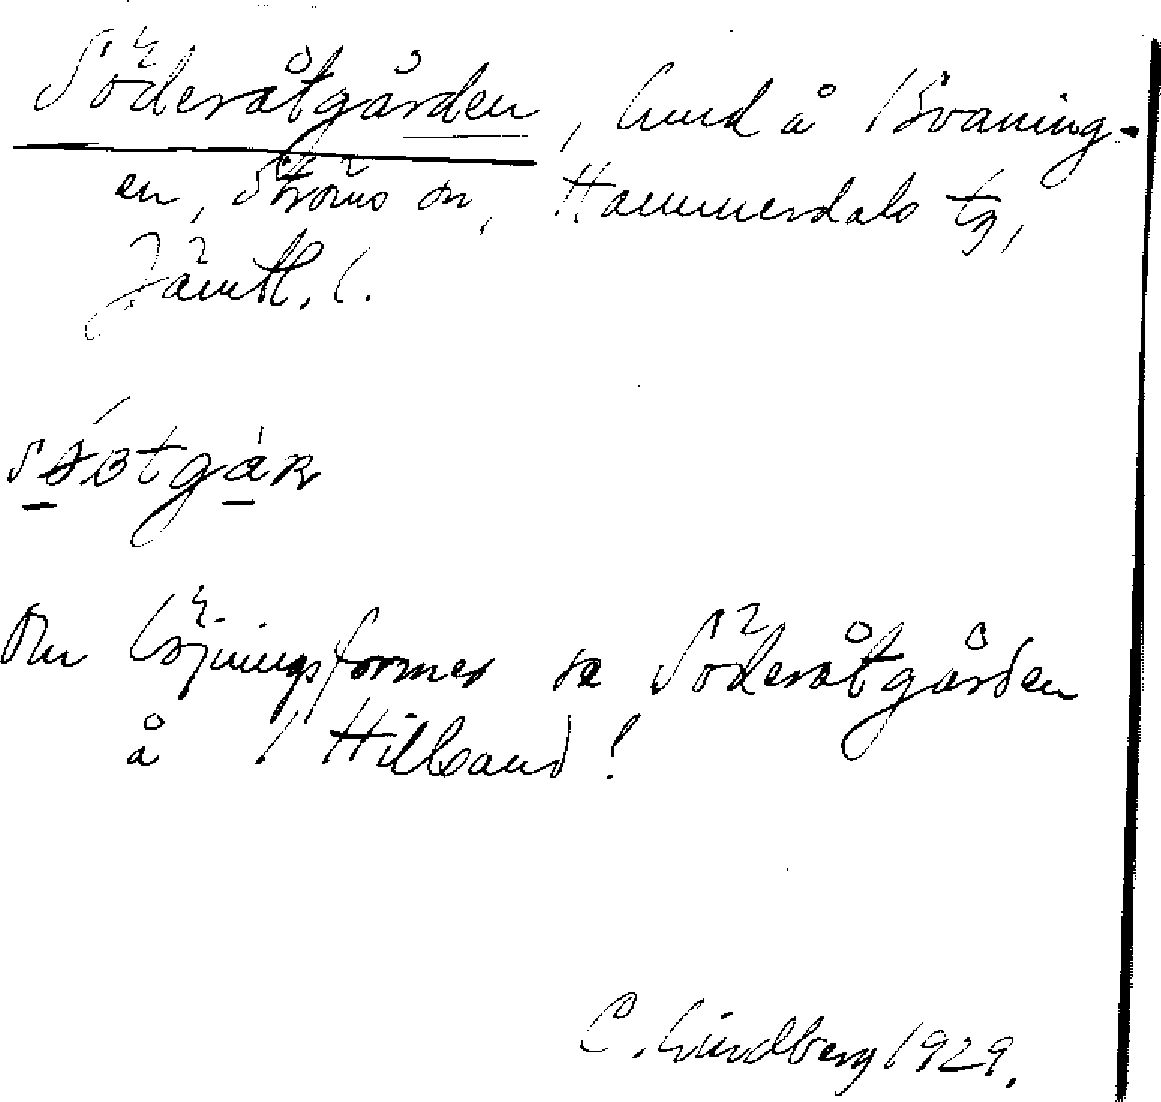 Söderåtgården, hmd å Svaning-
en, Ströms sn, Hammerdals tg,
Jämtl. l.
Om böjningsformer se Söderåtgården
å Hillsand!
C. Lindberg 1929.